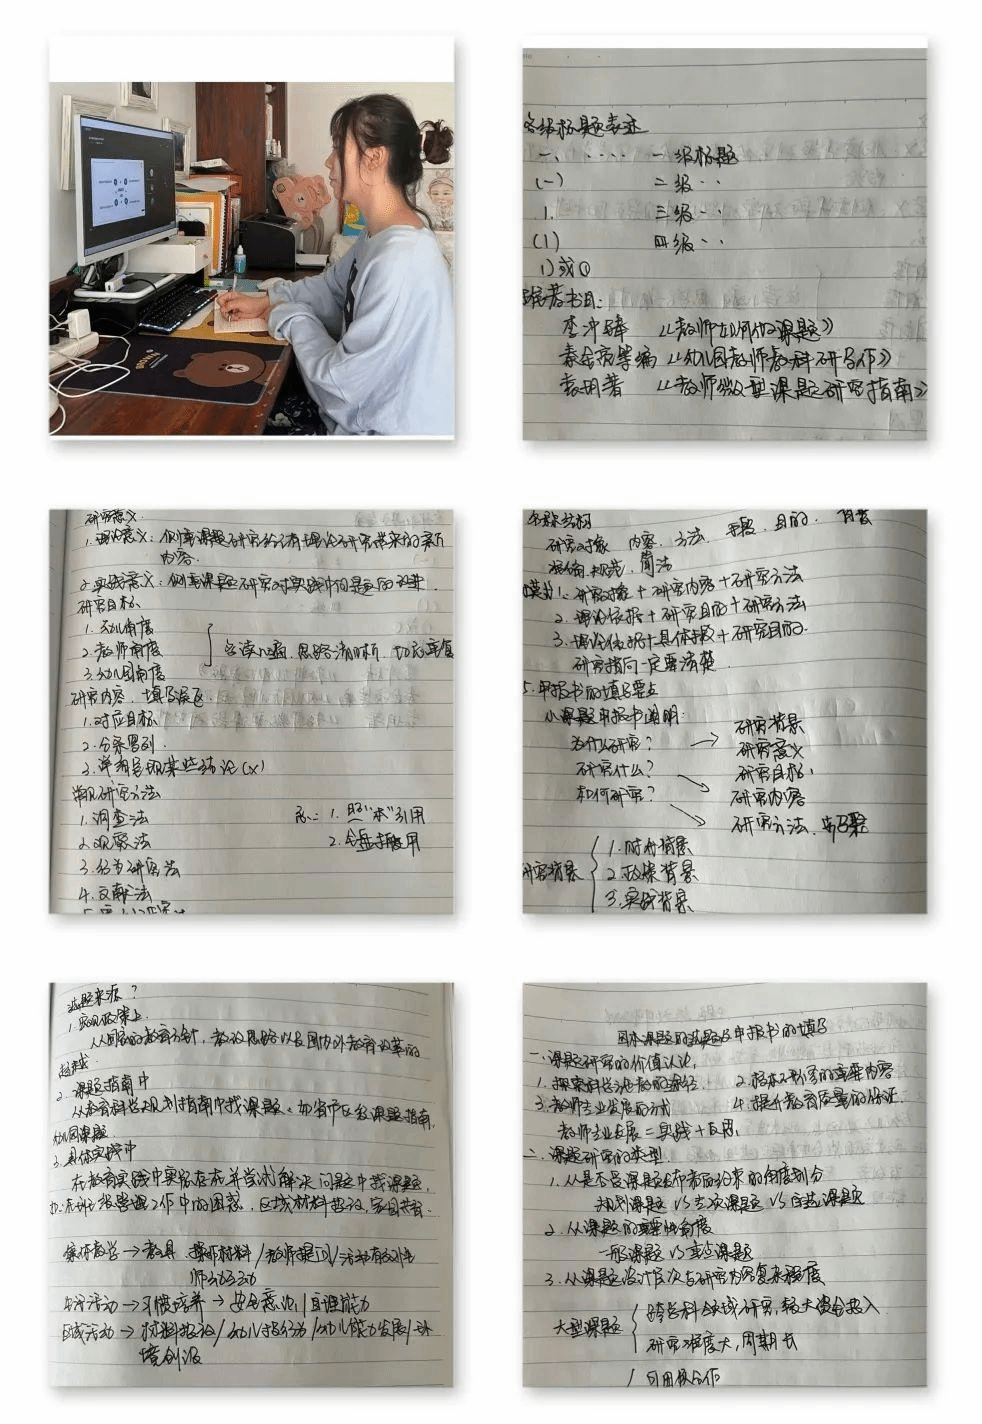 各级标题表述
一、····  一级标题
(一)  二级··
1.  三级··
(1)  四级··
1)或①
推荐书目:
李冲锋 《教师如何做课题》
等编《幼儿园教师教科研写作》
袁玥著 《教师微型课题研究指南》
研究意义
1.理论意义:侧重课题研究给现有理论研究带来的新
内容.
2.实践意义:侧重课题研究对实践中问题的改进.
研究目标
1.幼儿角度
2.教师角度
3.幼儿园角度
思路清晰、切忌重复
研究内容、填写误区
1.对应目标
2.分条罗列.
3.单独呈现某些结论(x)
常用研究方法
1.调查法
2.观察法
3.行为研究法
4.文献法
1.照"本"引用
2.全盘搬用
名称结构
研究对象 内容、方法、手段、目的、背景
准确、规范、简洁
模式:1.研究对象+研究内容+研究方法
2.理论依据+研究目的+研究方法
3.理论依据+具体手段+研究目的.
研究指向一定要清楚.
5.申报书的填写要点
小课题申报书说明:
为什么研究?
研究什么?
如何研究?
研究背景
研究意义
研究目标、
研究内容
研究方法、步骤
研究背景
1.时代背景
2.政策背景
3.实践背景
选题来源?
1.宏观政策上.
从国家的教育方针,教改思路以及国内外教育改革的
趋势
2.课题指南中
从教育科学规划指南中找课题、如省市区级课题指南,
幼儿园课题
3.具体实践中
在教育实践中实际存在并尝试解决问题中找课题,
如:在班级管理工作中的困惑、区域材料投放、家园共育.
集体教学→教具 操作材料/教师提问/活动有效性
师幼互动
生活活动→习惯培养→安全意识/自理能力
区域活动→材料投放/幼儿行为/幼儿能力发展/环
境创设
园本课题的选题及申报书的填写
一、课题研究的价值认识,
1.探索科学施教的途径. 2.校本研究的重要内容
3.教师专业发展的方式 4.提升教育质量的保证.
教师专业发展=实践+反思,
二、课题研究的类型.
1.从是否受课题发布者的约束的角度划分
规划课题 VS 专项课题 VS 自选课题
2.从课题的重要性角度
一般课题 VS 重点课题
3.从课题设计层次与研究内容复杂程度
大型课题
跨学科领域研究,较大资金投入
研究难度大,周期长